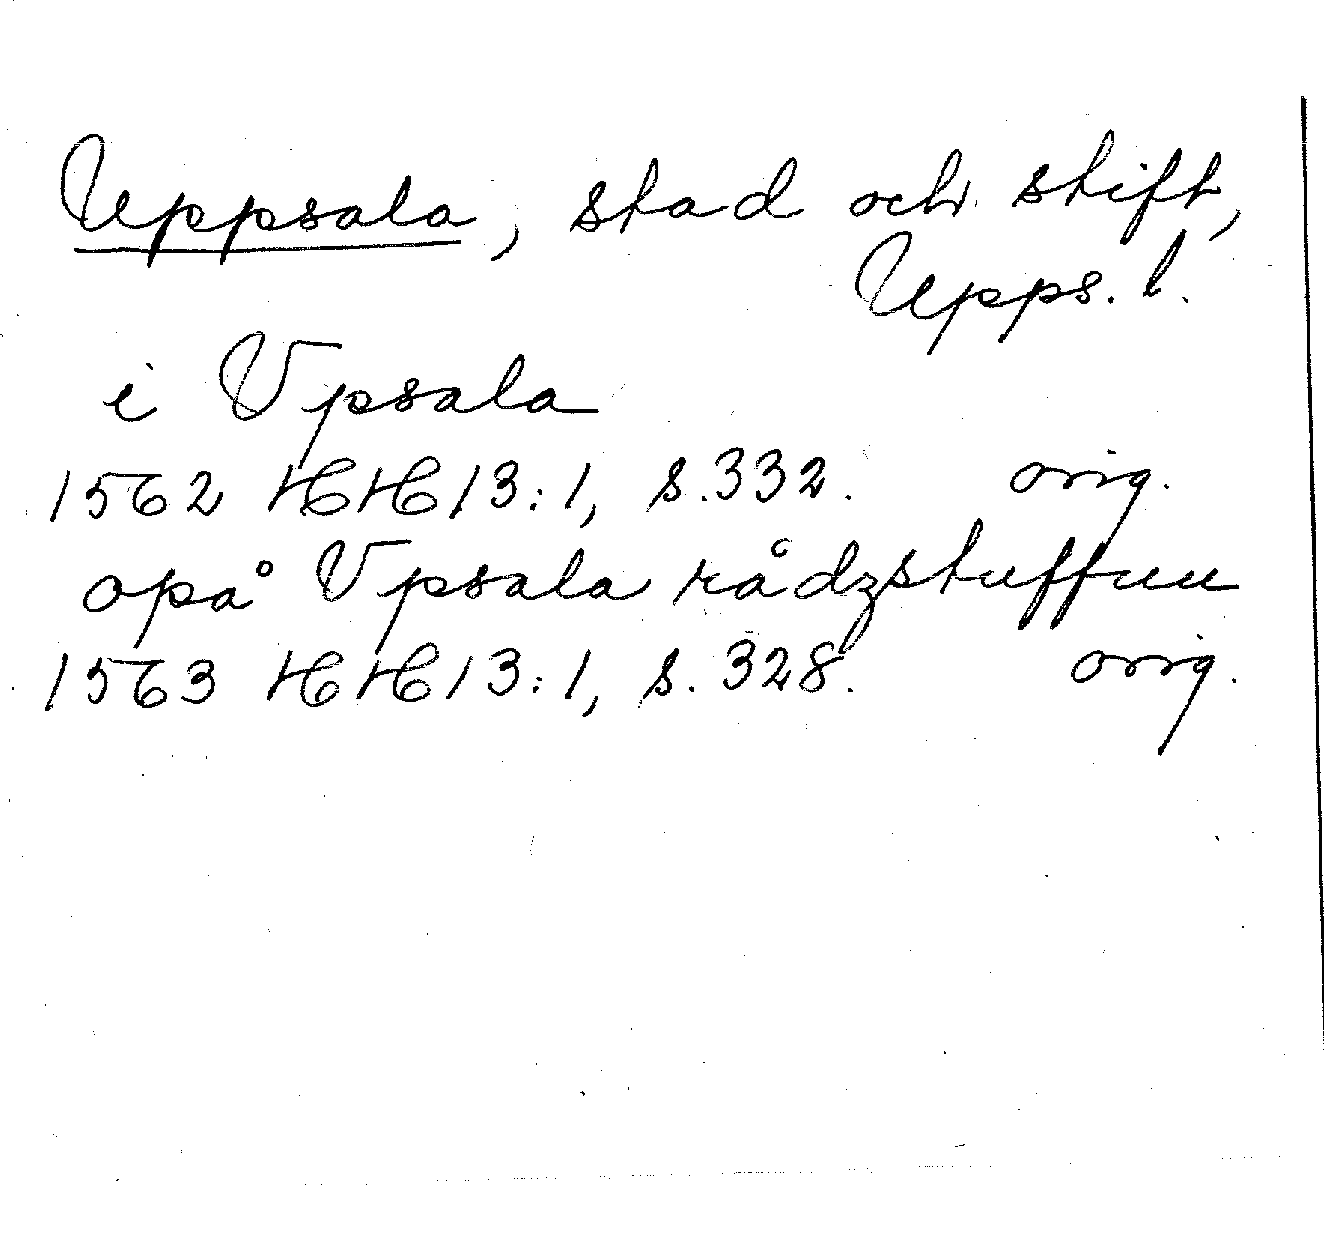 Uppsala, stad och stift,
Upps. l.
i Vpsala
1562 HH 13:1, s. 332. orig.
opå Vpsala rådzstuffuu
1563 HH 13:1, s. 328. orig.